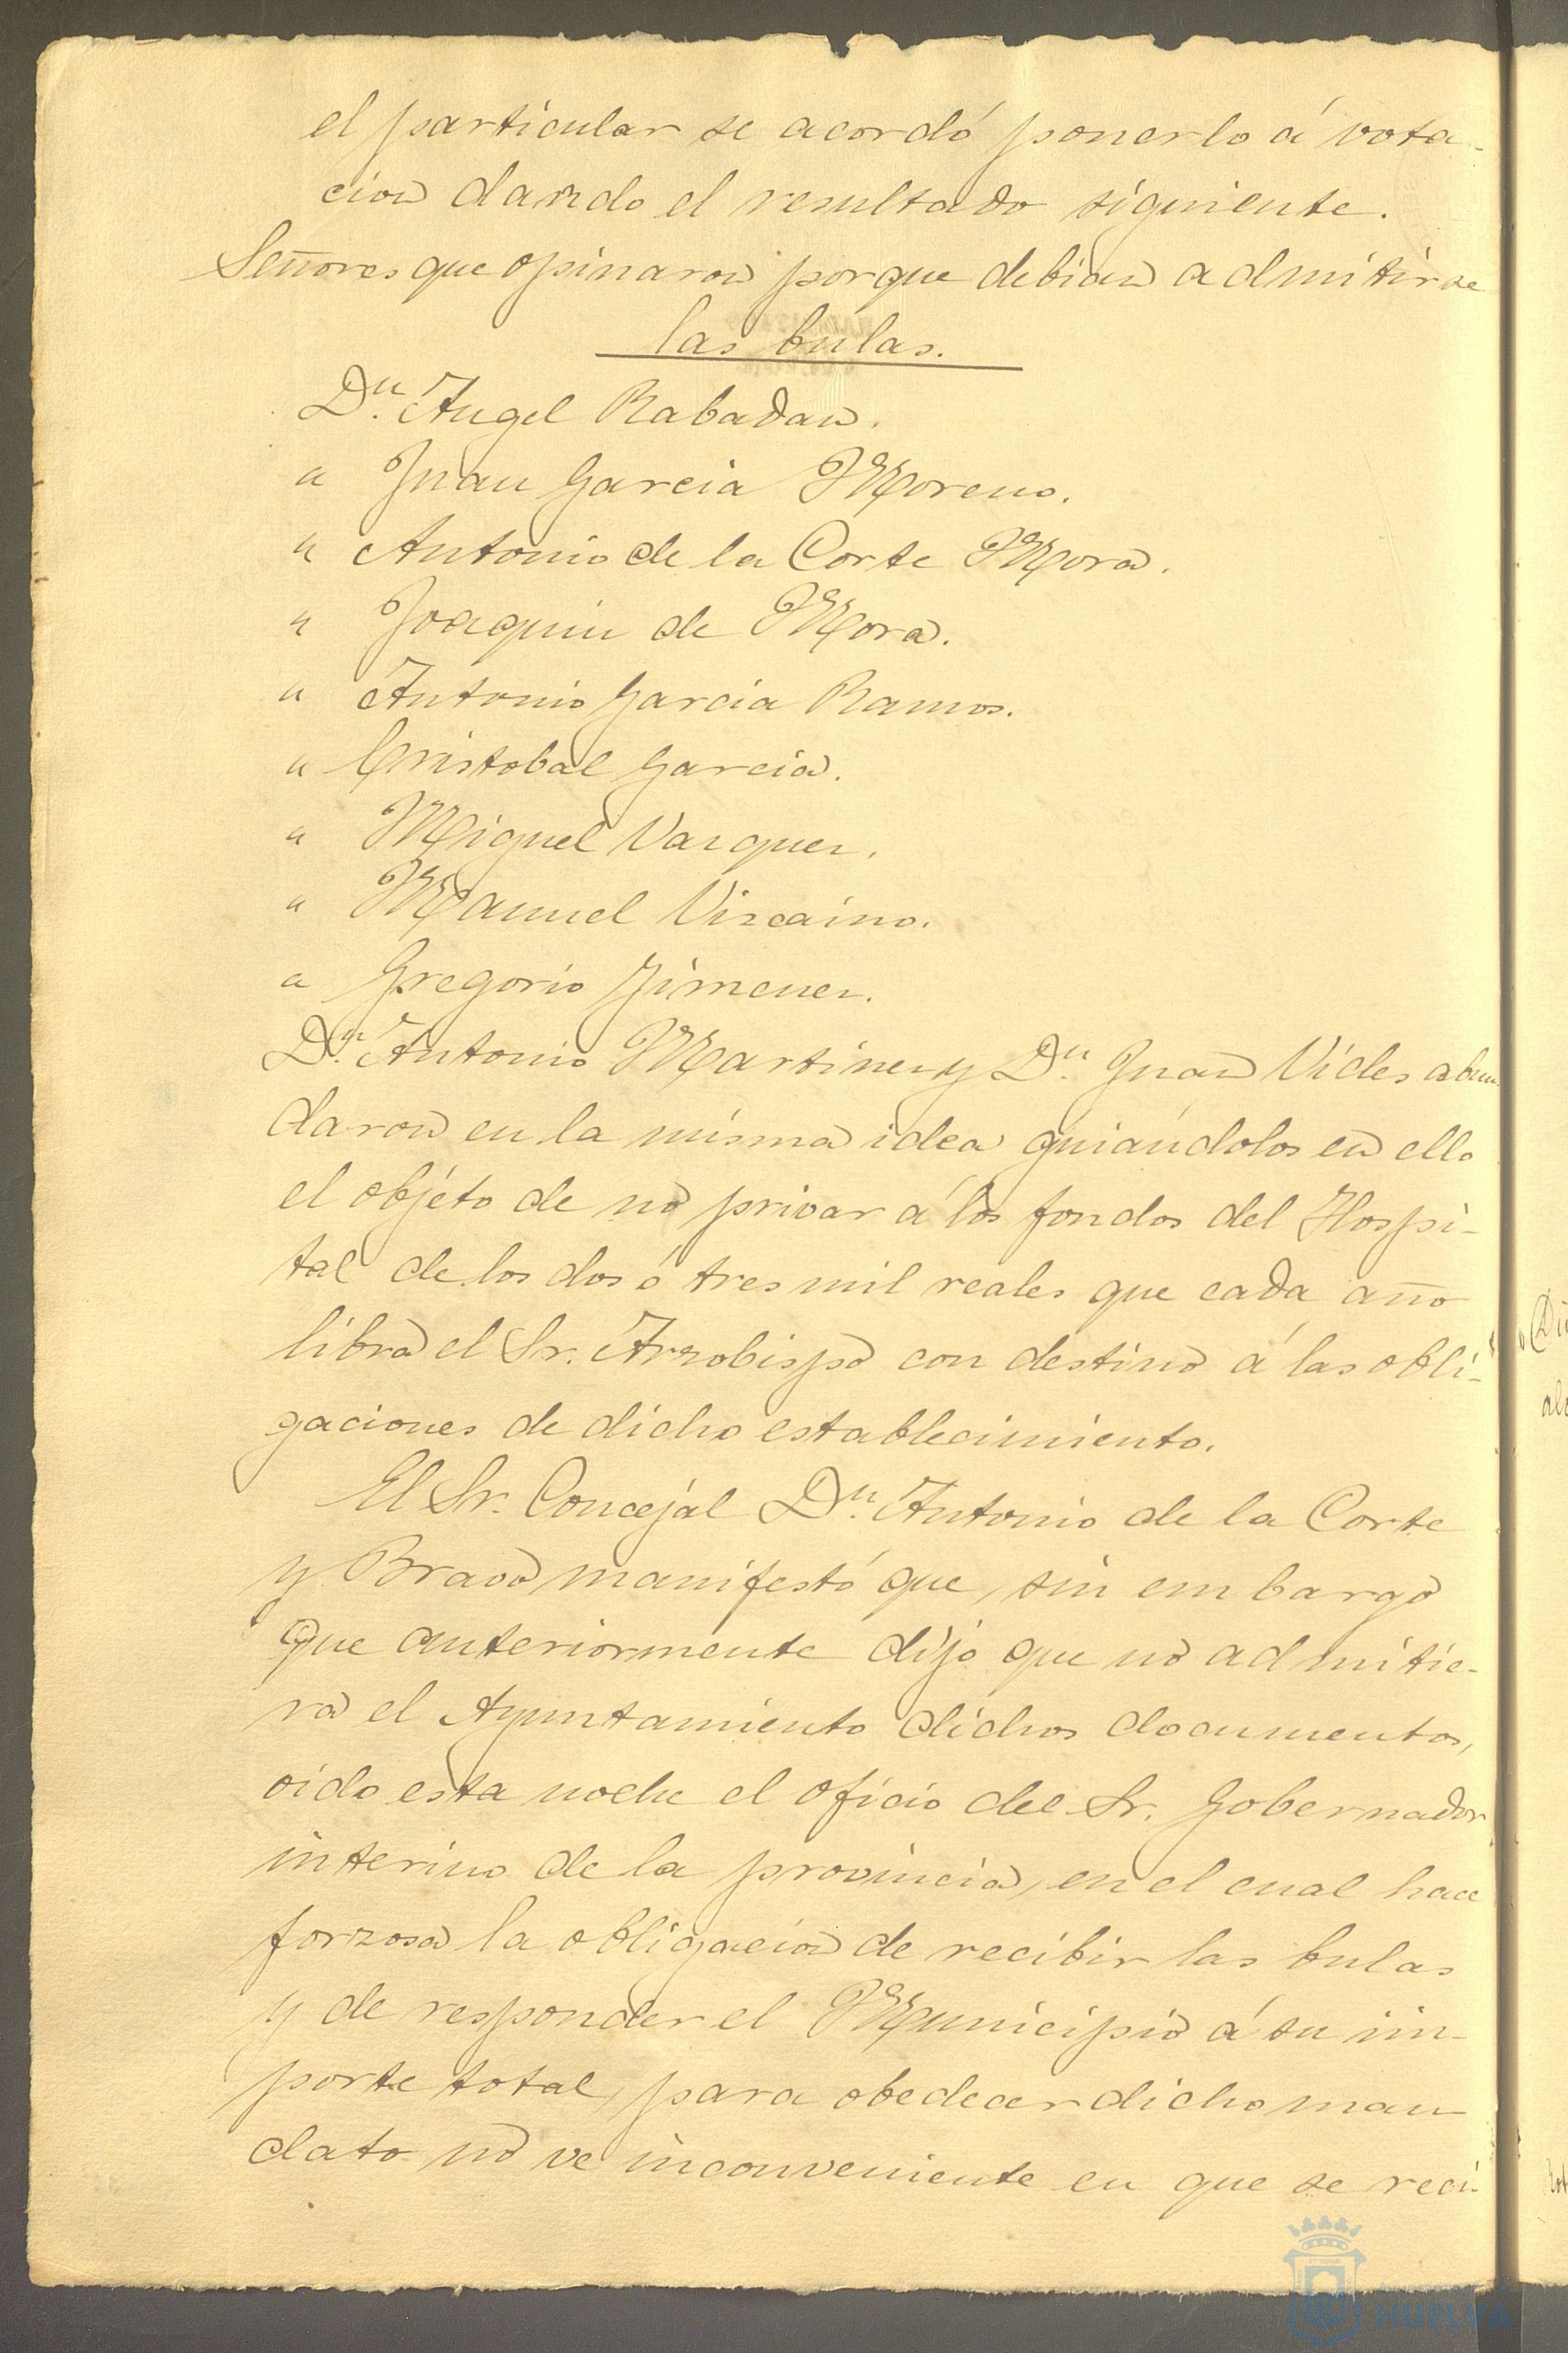 el particular se acordó ponerlo á vota-
cion dando el resultado siguiente.
Señores que opinaron porque debian admitirse
las bulas.
Dn. Angel Rabadan.
" Juan Garcia Moreno.
" Antonio de la Corte Mora.
" Joaquin de Mora.
" Antonio Garcia Ramos.
" Cristobal Garcia.
" Miguel Vazquez.
" Manuel Vizcaino.
" Gregorio Jimenez.
Dn. Antonio Martinez y Dn. Juan Vides abun
daron en la misma idea guiándolos en ello
el objeto de no privar á los fondos del Hospi-
tal de los dos ó tres mil reales que cada año
libra el Sr. Arzobispo con destino á las obli-
gaciones de dicho establecimiento.
El Sr. Concejal Dn. Antonio de la Corte
y Bravo manifestó que, sin embargo
que anteriormente dijo que no admitie-
ra el Ayuntamiento dichos documentos,
oido esta noche el oficio del Sr. Gobernador
interino de la provincia, en el cual hace
forzosa la obligacion de recibir las bulas
y de responder el Municipio á su im-
porte total, para obedecer dicho man-
dato no ve inconveniente en que se reci-
HUELVA